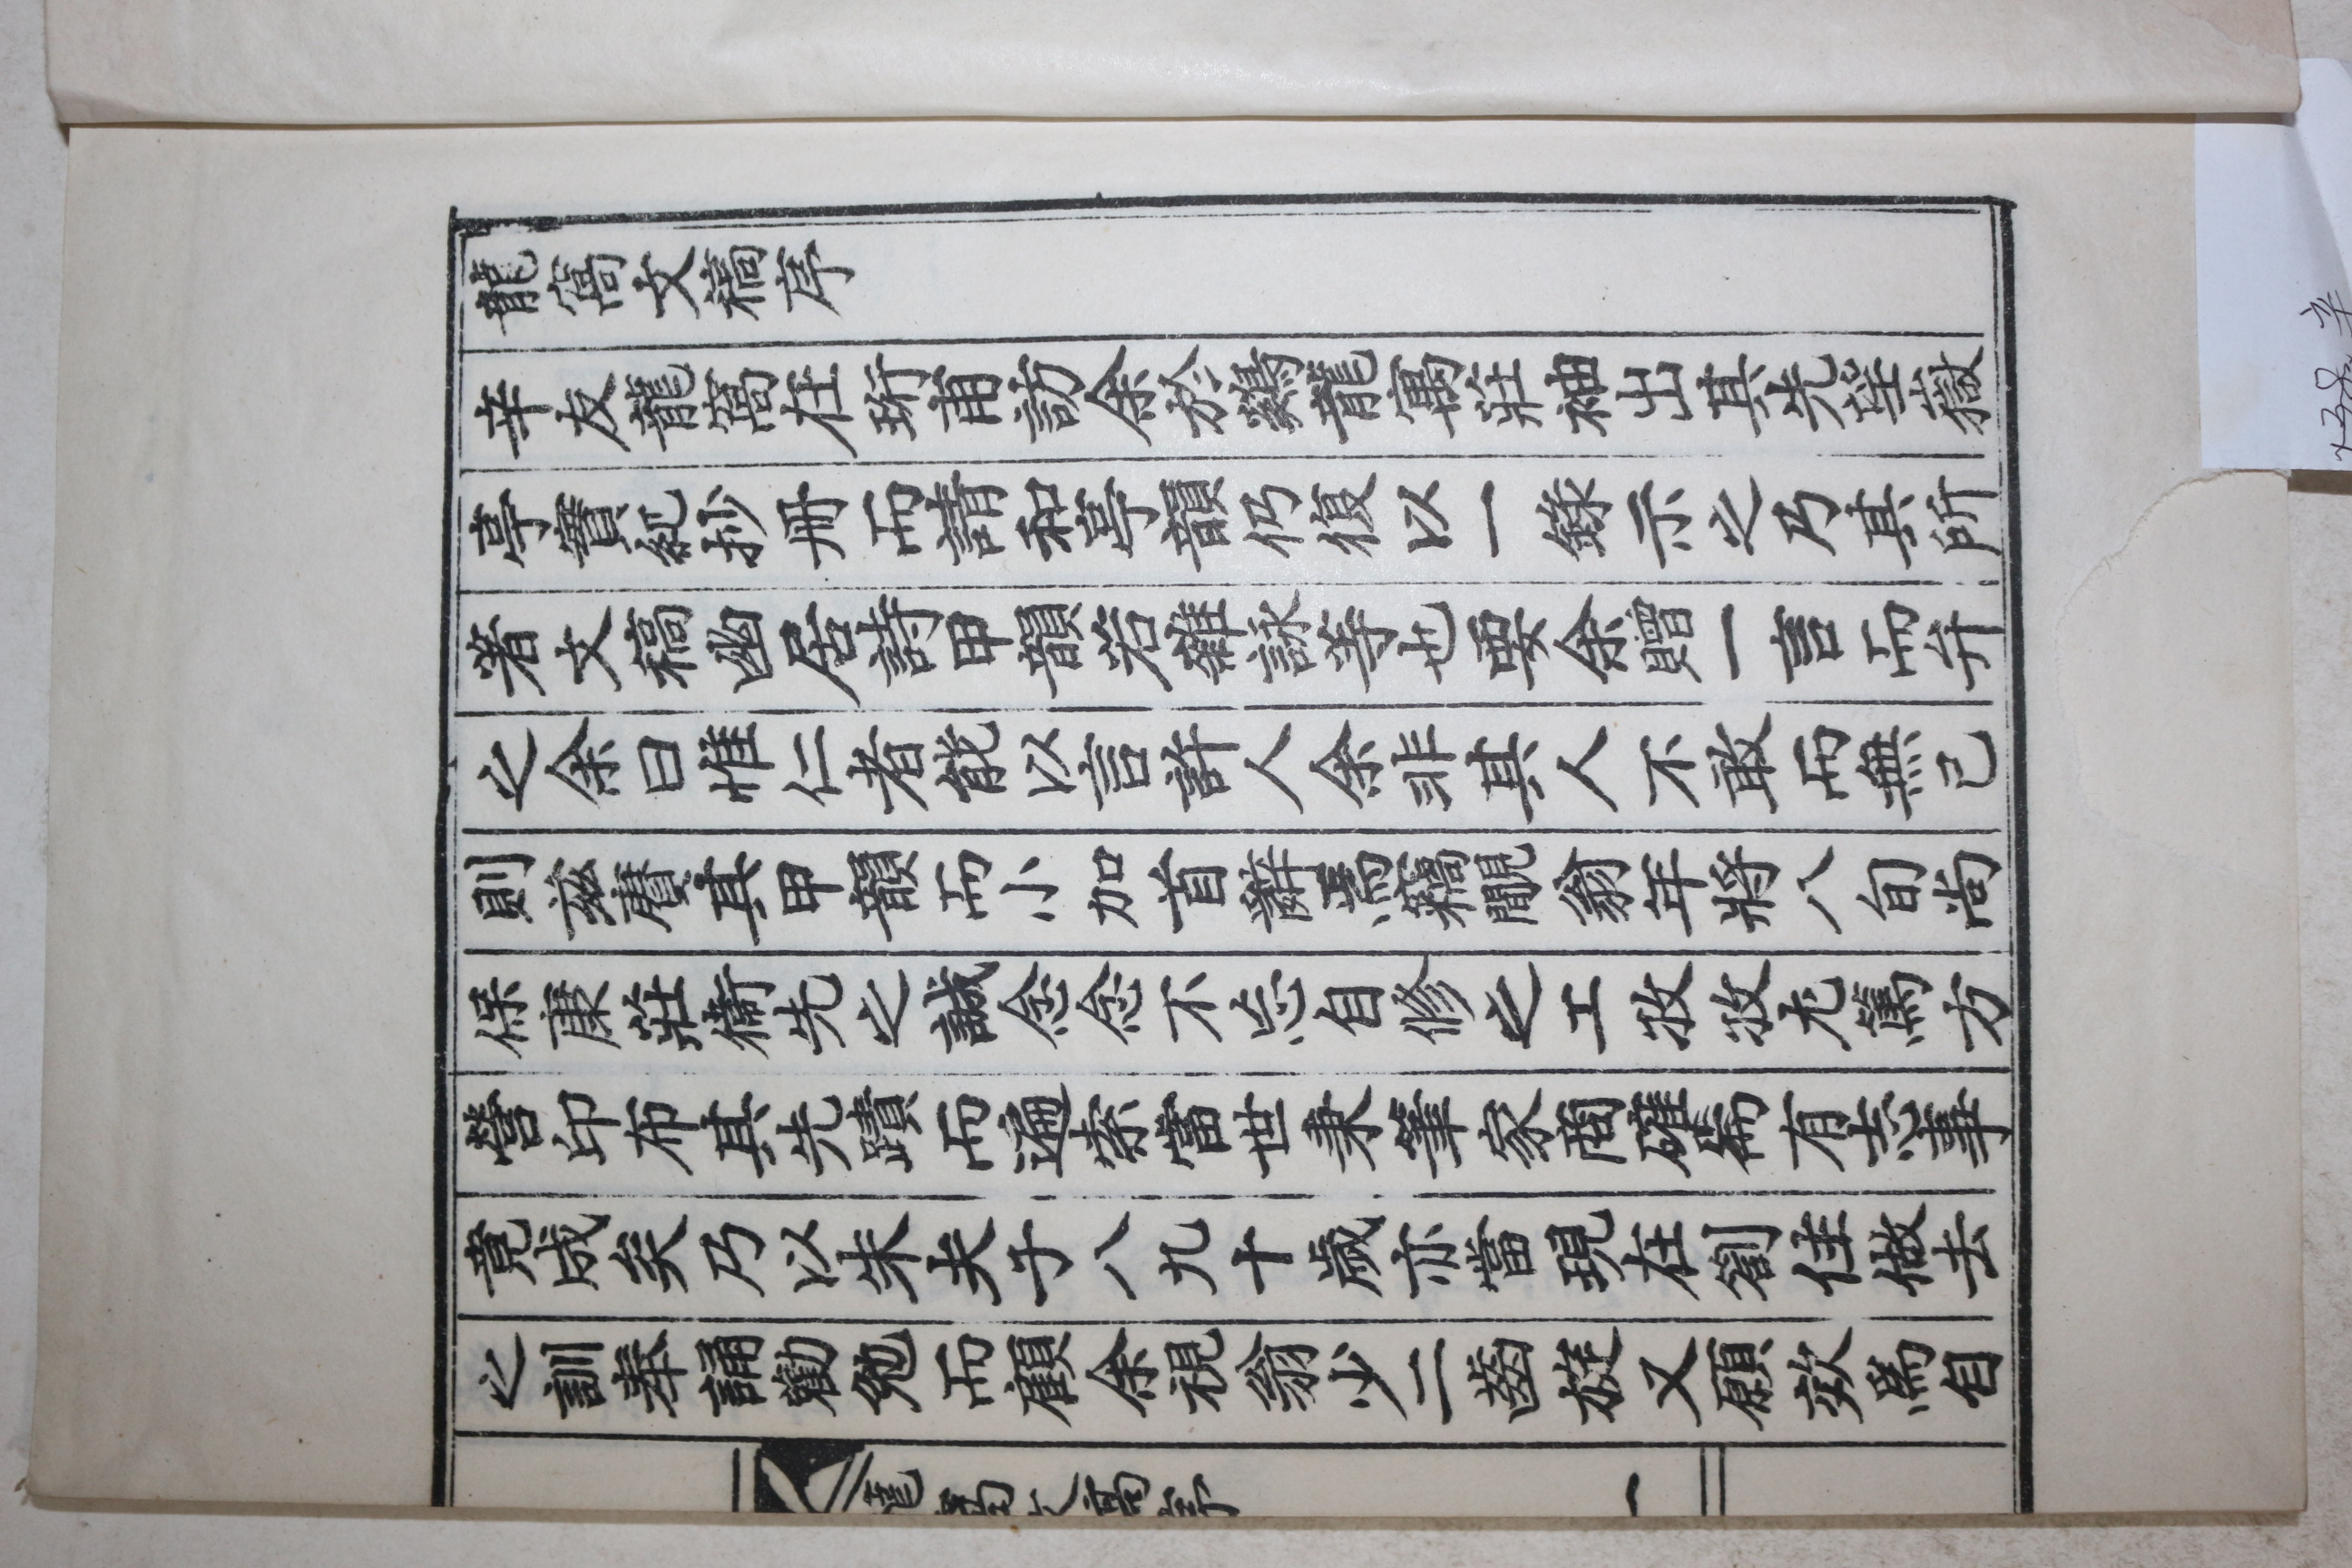 龍窩文稿序
辛友龍窩在珩甫訪余於龍莊袖出其先
亭實紀抄冊而請和亭韻仍復以一錄示之乃其所
著文稿幽居詩甲韻若雜詠等也要余贈一言而弁
之余曰惟仁者能以言許人余非其人不敢而無已
則茲賡其甲韻而小加首辭焉竊覸翁年將八旬尚
保康莊衛先之誠念念不忘自修之工孜孜尤篤方
營印布其先蹟而遍索當世秉筆家商確有志事
竟成矣乃以朱夫子八九十歲亦當現在劄住做去
之訓奉誦勸勉而顧余視翁少二齒旋又願效焉自
龍窩文稿序 一